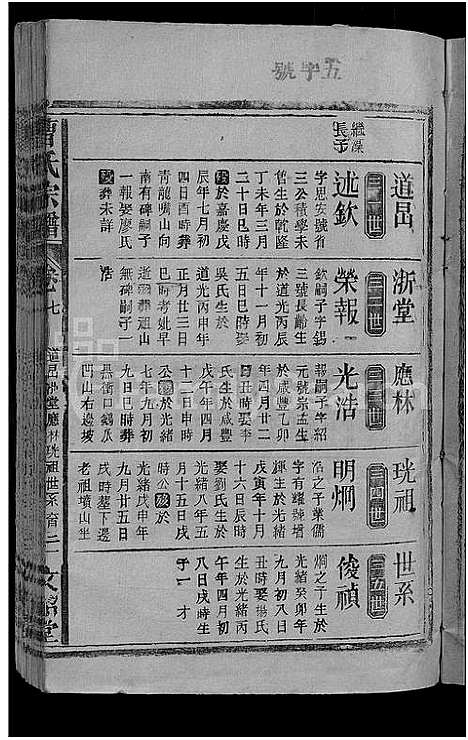 五字號
曹氏宗譜
卷七
道昌浙堂應林珖祖世系
二
文韜堂
道昌
浙堂
應林
珖祖
世系
繼藻長子
三十一世
述欽
字思安號省
三公積學未
舊生於乾隆
丁未年三月
二十日巳時
歿於嘉慶戊
辰年七月初
四日酉時葬
青龍嘴山向
南有碑嗣子
一報娶廖氏
歿葬未詳
三十二世
榮報
欽嗣子字錫
三號長齡生
於道光丙辰
年十一月初
五日巳時娶
吳氏生於
道光丙申年
正月廿三日
巳時考妣早
逝同葬祖山
無碑嗣子一
浩
三十三世
光浩
報嗣子字紹
元號宗孟生
於咸豐乙卯
年四月廿二
日丑時娶李
氏生於咸豐
戊午年四月
十二日申時
公歿於光緒
七年九月初
九日巳時葬
長衝口鍋爪
凹山右邊坡
三十四世
明炯
浩之子業儒
字有耀號增
輝生於光緒
戊寅年十月
十六日辰時
娶劉氏生於
光緒八年五
月十五日戌
時公歿於
光緒戊申年
九月廿五日
戌時塟下邊
老祖墳山坐
三十五世
俊禎
炯之子生於
光緒癸卯年
九月初八日
丑時娶楊氏
生於光緒丙
午年四月初
八日戌時生
子一才